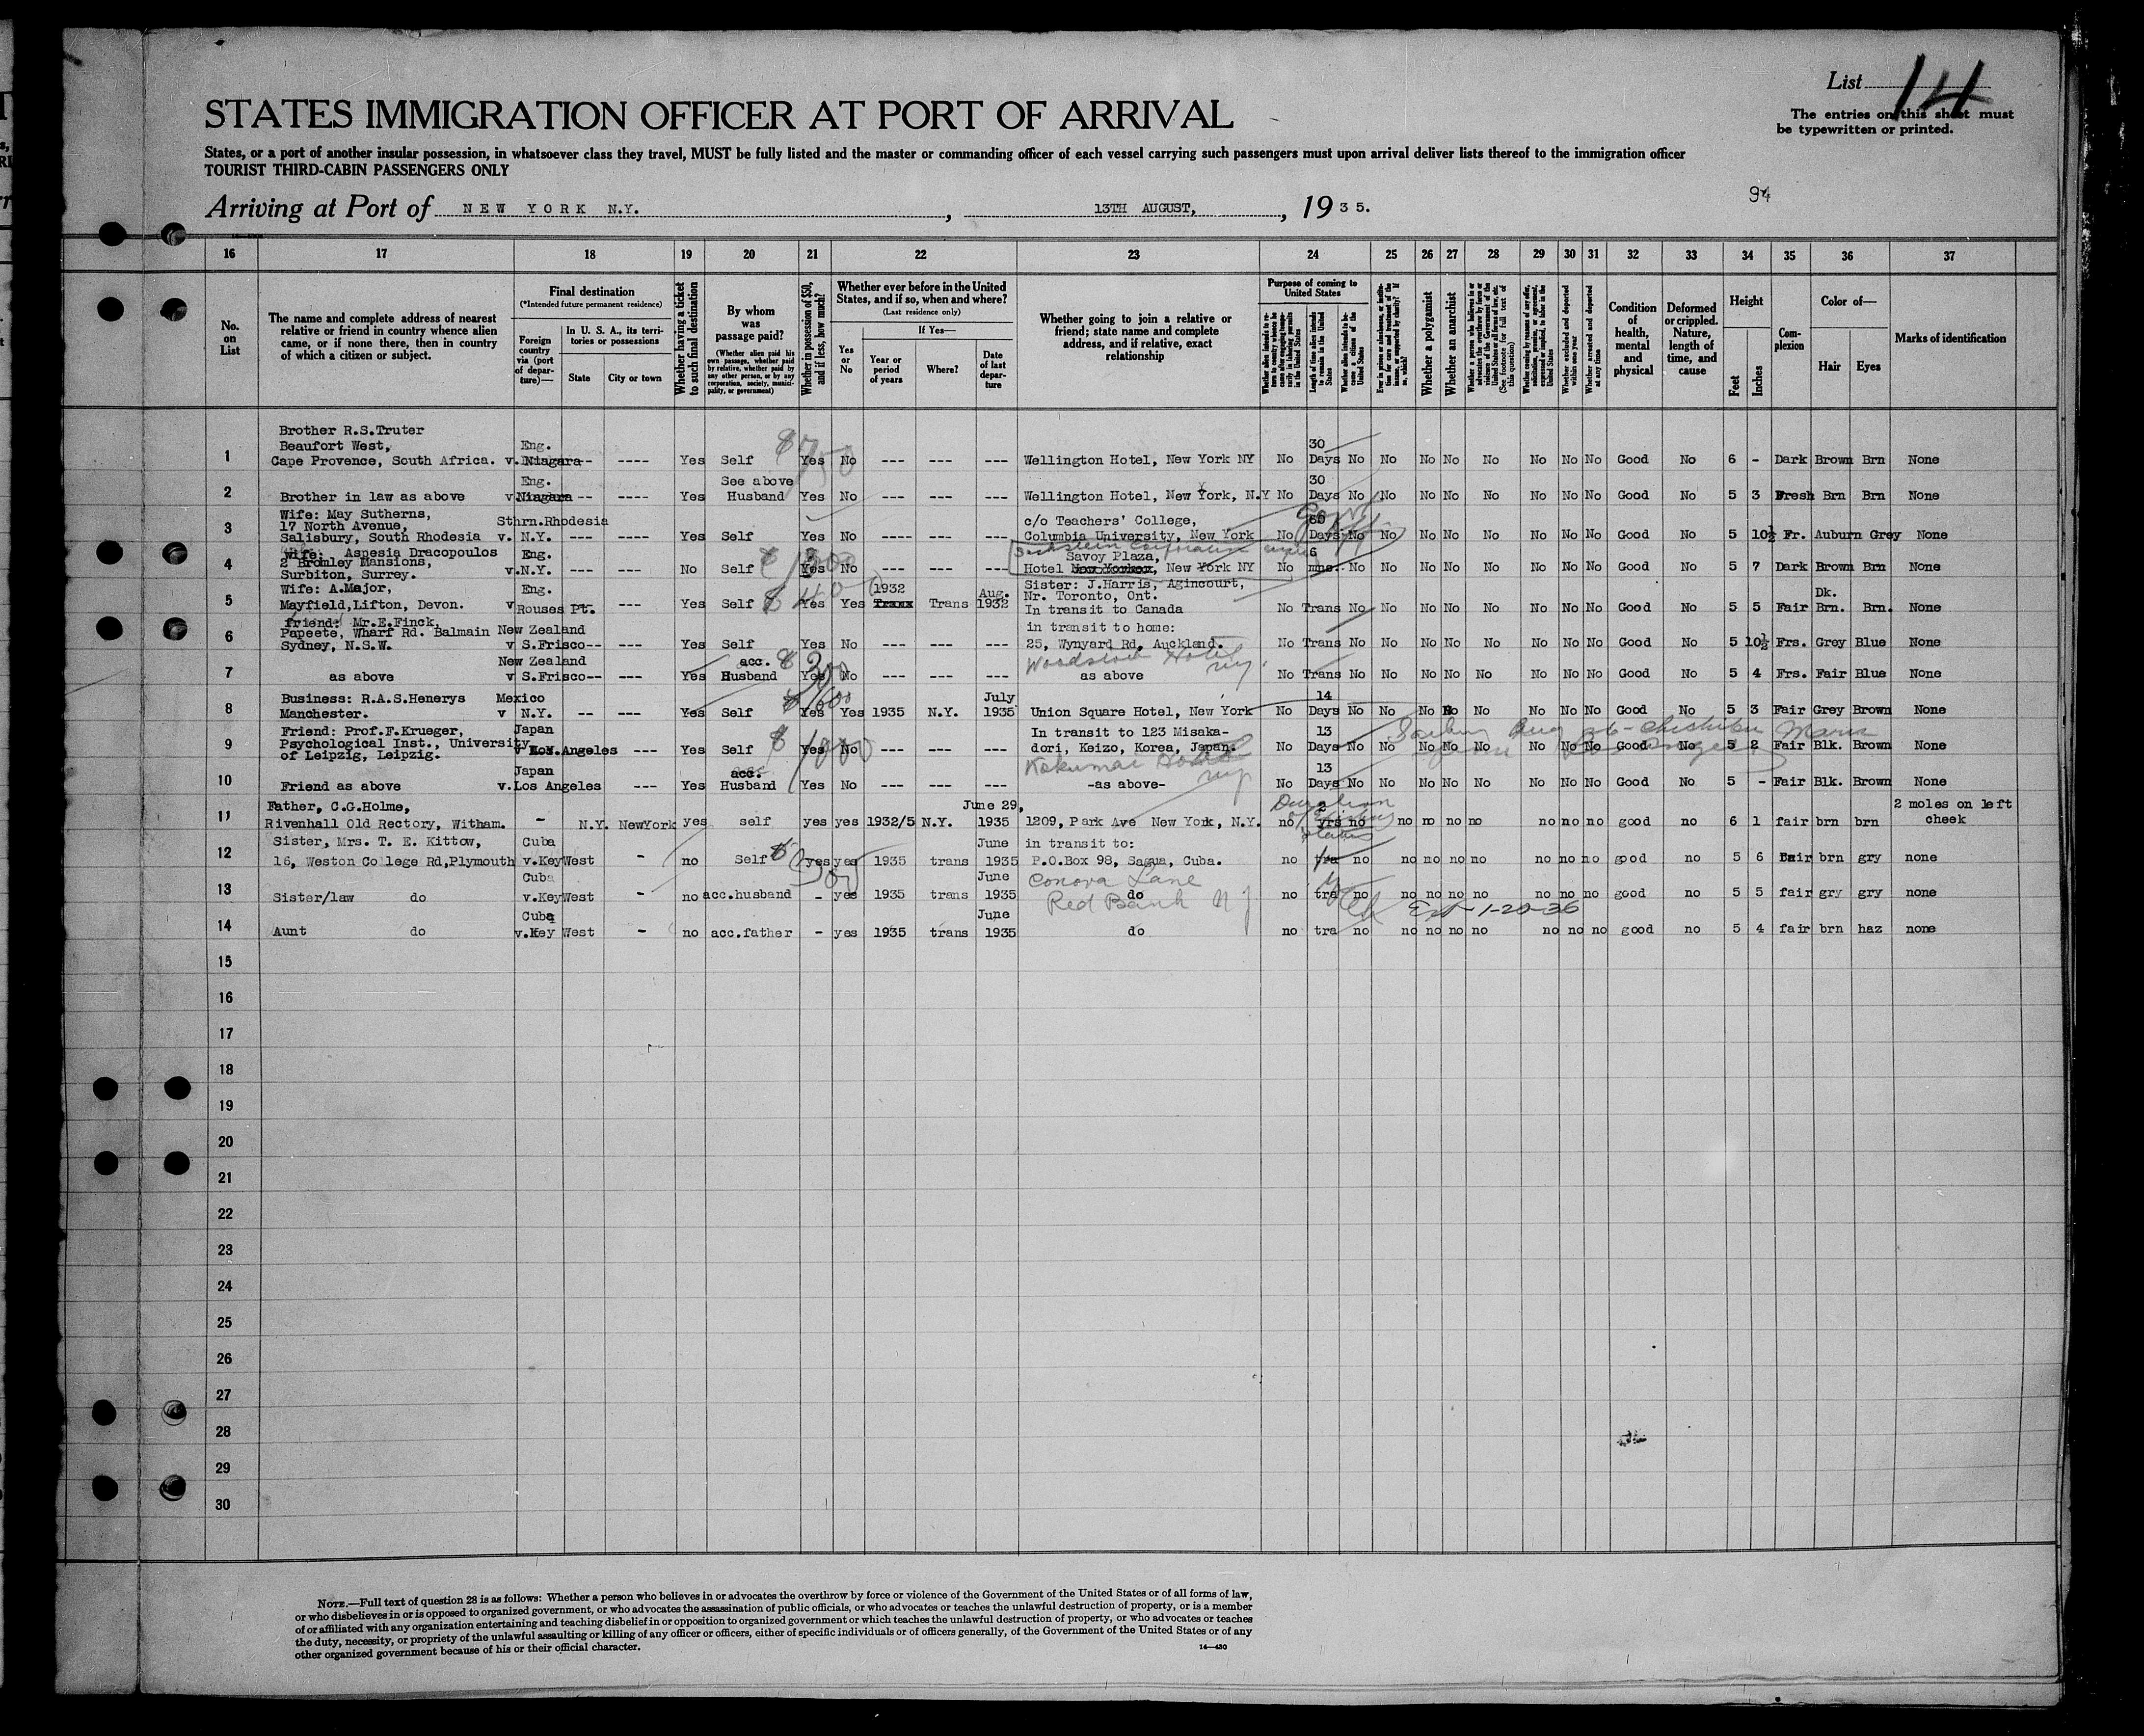 List 14
STATES IMMIGRATION OFFICER AT PORT OF ARRIVAL
The entries on this sheet must
be typewritten or printed.
States, or a port of another insular possession, in whatsoever class they travel, MUST be fully listed and the master or commanding officer of each vessel carrying such passengers must upon arrival deliver lists thereof to the immigration officer
TOURIST THIRD-CABIN PASSENGERS ONLY
94
Arriving at Port of NEW YORK N.Y. , 13TH AUGUST, , 1935.
16 17 18 19 20 21 22 23 24 25 26 27 28 29 30 31 32 33 34 35 36 37
No. on List
The name and complete address of nearest relative or friend in country whence alien came, or if none there, then in country of which a citizen or subject.
Final destination
(*Intended future permanent residence)
Foreign country via (port of departure)—
In U. S. A., its territories or possessions
State
City or town
Whether having a ticket to such final destination
By whom was passage paid?
(Whether alien paid his own passage, whether paid by relative, whether paid by any other person, or by any corporation, society, municipality, or government)
Whether in possession of $50, and if less, how much?
Whether ever before in the United States, and if so, when and where?
(Last residence only)
Yes or No
If Yes—
Year or period of years
Where?
Date of last departure
Whether going to join a relative or friend; state name and complete address, and if relative, exact relationship
Purpose of coming to United States
Length of time alien intends to remain in the United States
Whether alien intends to become a citizen of the United States
Whether a polygamist
Whether an anarchist
Whether excluded and deported within one year
Whether arrested and deported at any time
Condition of health, mental and physical
Deformed or crippled. Nature, length of time, and cause
Height
Feet
Inches
Complexion
Color of—
Hair
Eyes
Marks of identification
Brother R.S.Truter
Beaufort West, Eng. 30
1 Cape Provence, South Africa. v. Niagara-- ---- Yes Self $750 Yes No --- --- --- Wellington Hotel, New York NY No Days No No No No No No No No Good No 6 - Dark Brown Brn None
Eng. See above 30
2 Brother in law as above v Niagara -- ---- Yes Husband Yes No --- --- --- Wellington Hotel, New York, N.Y No Days No No No No No No No No Good No 5 3 Fresh Brn Brn None
Wife: May Sutherns,
17 North Avenue, Sthrn.Rhodesia c/o Teachers' College, 60
3 Salisbury, South Rhodesia v. N.Y. --- ---- Yes Self Yes No --- --- --- Columbia University, New York No Days No No No No No No No No Good No 5 10½ Fr. Auburn Grey None
wife: Aspesia Dracopoulos
2 Bromley Mansions, Eng. Savoy Plaza, 6
4 Surbiton, Surrey. v.N.Y. --- --- No Self $1300 Yes No --- --- --- Hotel New Yorker, New York NY No mns. No No No No No No No No Good No 5 7 Dark Brown Brn None
Wife: A.Major, Eng. 1932 Aug. Sister: J.Harris, Agincourt,
Nr. Toronto, Ont. Dk.
5 Mayfield,Lifton, Devon. v Rouses Pt. --- Yes Self $40 Yes Yes Trans 1932 In transit to Canada No Trans No No No No No No No No Good No 5 5 Fair Brn. Brn. None
friend: Mr.E.Finck,
Papeete, Wharf Rd. Balmain New Zealand in transit to home:
6 Sydney, N.S.W. v S.Frisco-- --- Yes Self Yes No --- --- --- 25, Wynyard Rd, Auckland. No Trans No No No No No No No No Good No 5 10½ Frs. Grey Blue None
New Zealand acc. $300 Woodstock Hotel NY.
7 as above v S.Frisco-- --- Yes Husband Yes No --- --- --- as above No Trans No No No No No No No No Good No 5 4 Frs. Fair Blue None
Business: R.A.S.Henerys Mexico $1600 July 14
8 Manchester. v N.Y. -- --- Yes Self Yes Yes 1935 N.Y. 1935 Union Square Hotel, New York No Days No No No No No No No No Good No 5 3 Fair Grey Brown None
Friend: Prof.F.Krueger, Japan In transit to 123 Misaka- 13
9 Psychological Inst., University v Los.Angeles --- Yes Self $1000 Yes No --- --- --- dori, Keizo, Korea, Japan. No Days No No No No No No No No Good No 5 2 Fair Blk. Brown None
of Leipzig, Leipzig.
Japan acc. 13
10 Friend as above v.Los Angeles --- Yes Husband Yes No --- --- --- -as above- No Days No No No No No No No No Good No 5 - Fair Blk. Brown None
Father, C.G.Holme, June 29, Duration of status 2 2 moles on left
11 Rivenhall Old Rectory, Witham. - N.Y. NewYork yes self yes yes 1932/5 N.Y. 1935 1209, Park Ave New York, N.Y. no yrs no no no no no no no no good no 6 1 fair brn brn cheek
Sister, Mrs. T. E. Kittow, Cuba June in transit to:
12 16, Weston College Rd,Plymouth v.KeyWest - no Self yes yes 1935 trans 1935 P.O.Box 98, Sagua, Cuba. no tra no no no no no no no no good no 5 6 fair brn gry none
Cuba June Conova Lane
13 Sister/law do v.KeyWest - no acc.husband - yes 1935 trans 1935 do no tra no no no no no no no no good no 5 5 fair gry gry none
Red Bank NJ
Cuba June Ext 1-20-36
14 Aunt do v.Key West - no acc.father - yes 1935 trans 1935 do no tra no no no no no no no no good no 5 4 fair brn haz none
15
16
17
18
19
20
21
22
23
24
25
26
27
28
29
30
NOTE.—Full text of question 28 is as follows: Whether a person who believes in or advocates the overthrow by force or violence of the Government of the United States or of all forms of law,
or who disbelieves in or is opposed to organized government, or who advocates the assassination of public officials, or who advocates or teaches the unlawful destruction of property, or is a member
of or affiliated with any organization entertaining and teaching disbelief in or opposition to organized government or which teaches the unlawful destruction of property, or who advocates or teaches
the duty, necessity, or propriety of the unlawful assaulting or killing of any officer or officers, either of specific individuals or of officers generally, of the Government of the United States or of any
other organized government because of his or their official character.
14—430